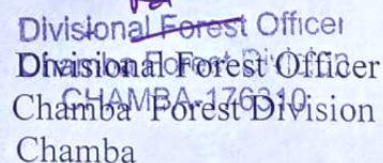 Divisional Forest Officer
Divisional Forest Officer
Chamba Forest Division
CHAMBA-176310
Chamba